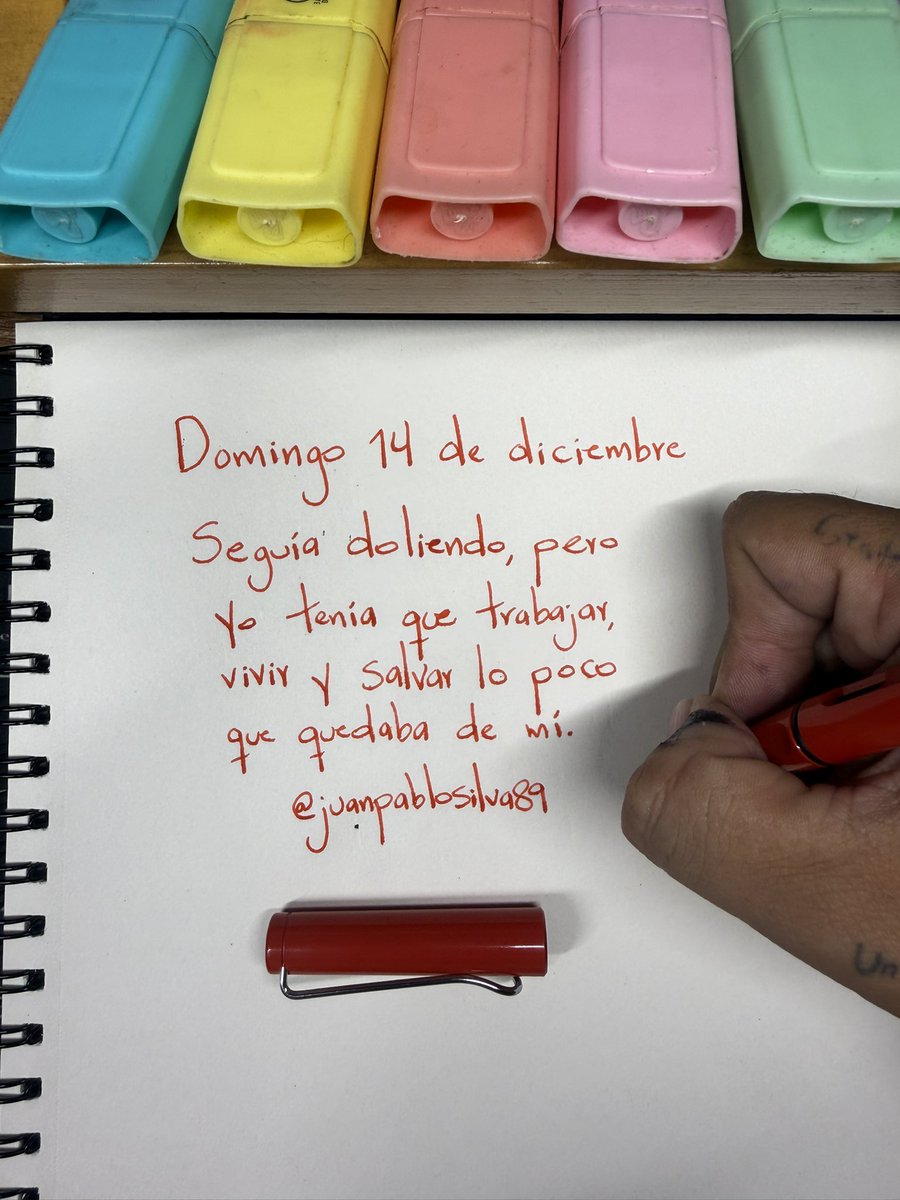 Domingo 14 de diciembre
Seguía doliendo, pero
yo tenía que trabajar,
vivir y salvar lo poco
que quedaba de mí.
@juanpablosilva89
Un